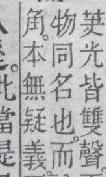 英光皆雙聲
物同名也而
角本無疑義
此當是